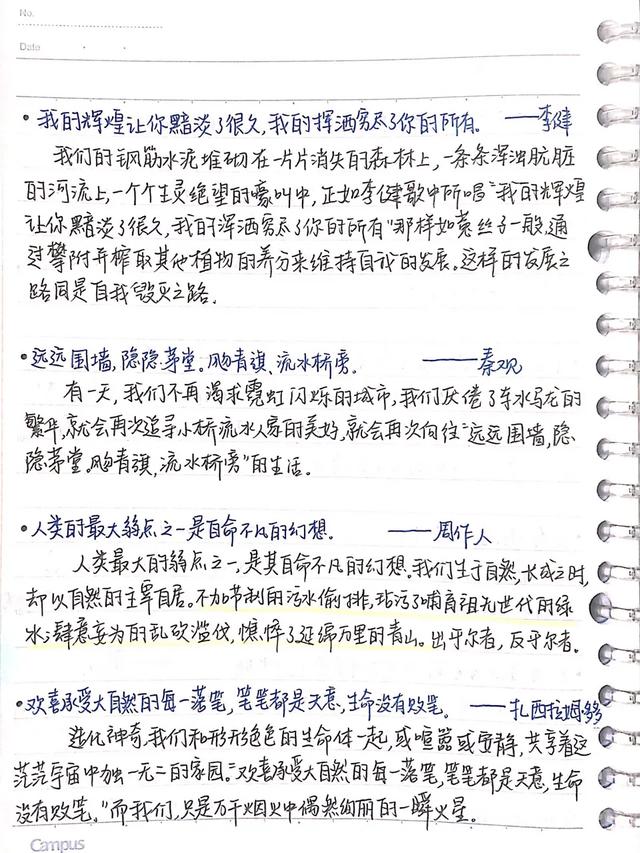 No.
Date
• 我的辉煌让你黯淡了很久,我的挥洒穷尽了你的所有。 ——李健
我们的钢筋水泥堆砌在一片片消失的森林上,一条条浑浊肮脏
的河流上,一个个生灵绝望的嚎叫中,正如李健歌中所唱"我的辉煌
让你黯淡了很久,我的浑洒穷尽了你的所有"那样如菟丝子一般,通
过攀附并榨取其他植物的养分来维持自我的发展。这样的发展之
路同是自我毁灭之路.
• 远远围墙,隐隐茅堂。飏青旗、流水桥旁。 ——秦观
有一天,我们不再渴求霓虹闪烁的城市,我们厌倦了车水马龙的
繁华,就会再次追寻小桥流水人家的美好,就会再次向往"远远围墙,隐
隐茅堂。飏青旗,流水桥旁"的生活。
• 人类的最大弱点之一是自命不凡的幻想. ——周作人
人类最大的弱点之一,是其自命不凡的幻想.我们生于自然,长成之时,
却以自然的主宰自居。不加节制的污水偷排,玷污了哺育祖先世代的绿
水;肆意妄为的乱砍滥伐,憔悴了延绵万里的青山。出于尔者,反乎尔者.
• 欢喜承受大自然的每一落笔,笔笔都是天意,生命没有败笔。 ——扎西拉姆·多多
造化神奇.我们和形形色色的生命体一起,或喧嚣或安静,共享着这
茫茫宇宙中独一无二的家园."欢喜承受大自然的每一落笔,笔笔都是天意,生命
没有败笔。"而我们,只是万千烟火中偶然绚丽的一瞬火星。
Campus